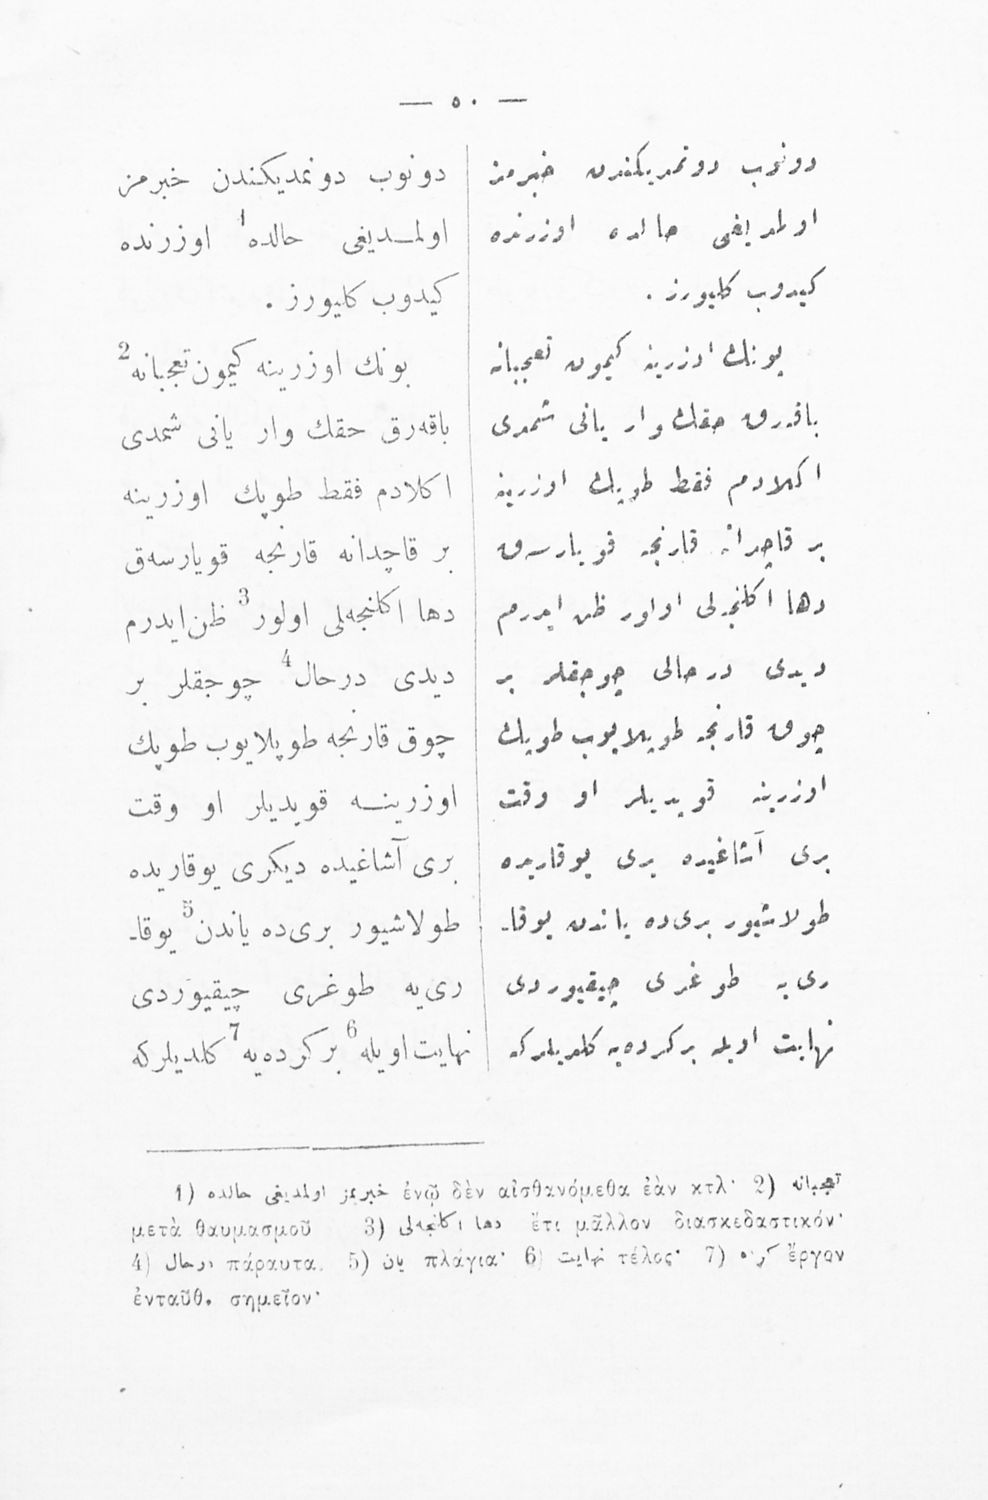 — ٥٠ —
دونوب دونمدیكندن خبرمز
اولمدیغی حالده اوزرنده
كیدوب كلیورز .
بونك اوزرینه كیمون تعجبانه
باقه‌رق حقك وار یانی شمدی
اكلادم فقط طوپك اوزرینه
بر قاچدانه قارنجه قویارسه‌ق
دها اكلنجه‌لی اولور ظن ایدرم
دیدی درحال چوجقلر بر
چوق قارنجه طوپلایوب طوپك
اوزرینه قویدیلر او وقت
بری آشاغیده بری یوقاریده
طولاشیور بری‌ده یاندن یوقا-
ری‌یه طوغری چیقیوردی
نهایت اویله بر كرده‌یه كلدیلركه
دونوب دونمدیكندن خبرمز
اولمـدیغی حالده1 اوزرنده
كیدوب كلیورز .
بونك اوزرینه كیمون تعجبانه2
باقه‌رق حقك وار یانی شمدی
اكلادم فقط طوپك اوزرینه
بر قاچدانه قارنجه قویارسه‌ق
دها اكلنجه‌لی اولور3 ظن ایدرم
دیدی درحال4 چوجقلر بر
چوق قارنجه طوپلایوب طوپك
اوزرینـه قویدیلر او وقت
بری آشاغیده دیكری یوقاریده
طولاشیور بری‌ده یاندن5 یوقا-
ری‌یه طوغری چیقیوردی
نهایت اویله6 بر كرده‌یه7 كلدیلركه
1) خبریمز اولمدیغی حالده ἐνῷ δὲν αἰσθανόμεθα ἐὰν κτλ· 2) تعجبانه
μετὰ θαυμασμοῦ 3) دها اكلنجه‌لی ἔτι μᾶλλον διασκεδαστικόν·
4) درحال πάραυτα. 5) یان πλάγια· 6) نهایت τέλος· 7) كرده ἔργον
ἐνταῦθ. σημεῖον·